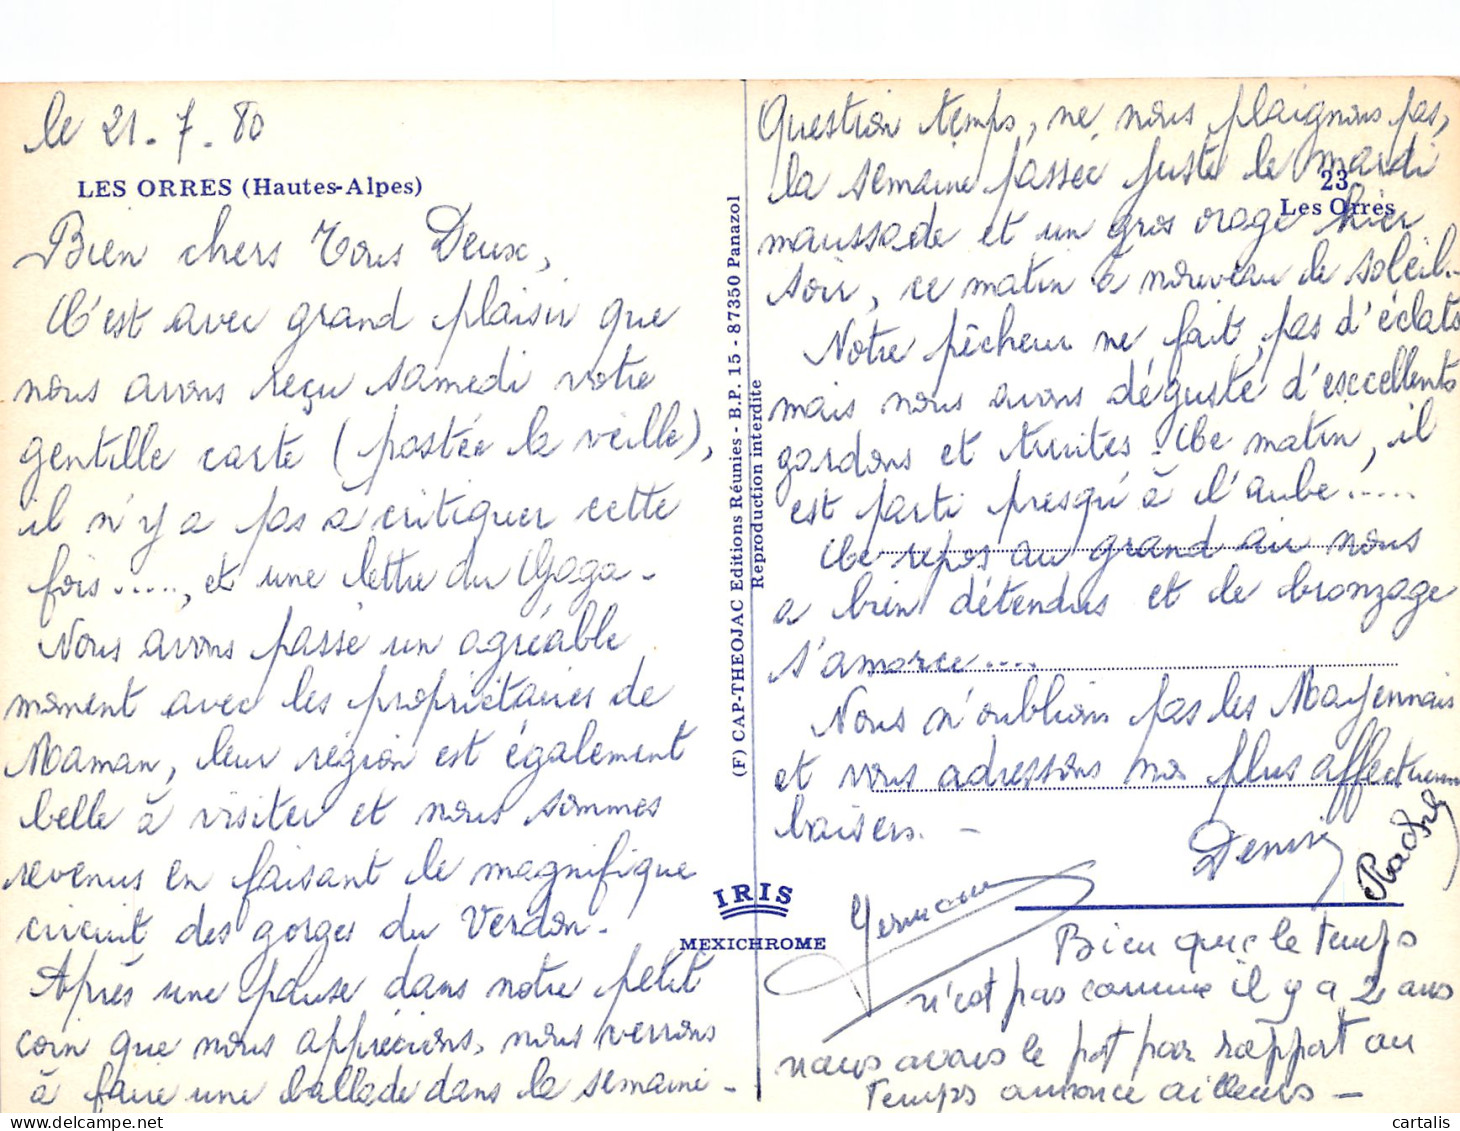 le 21.7.80
LES ORRES (Hautes-Alpes)
Bien chers Vous Deux,
C'est avec grand plaisir que
nous avons reçu samedi votre
gentille carte (postée la veille),
il n'y a pas à critiquer cette
fois....., et une lettre du Gaga.
Nous avons passé un agréable
moment avec les propriétaires de
Maman, leur région est également
belle à visiter et nous sommes
revenus en faisant le magnifique
circuit des gorges du Verdon.
Après une pause dans notre petit
coin que nous apprécions, nous verrons
à faire une ballade dans la semaine -
(F) CAP-THEOJAC Editions Réunies - B.P. 15 - 87350 Panazol
Reproduction interdite
IRIS
MEXICHROME
23
Les Orres
Question temps, ne nous plaignons pas,
la semaine passée juste le mardi
maussade et un gros orage hier
soir, ce matin à nouveau le soleil.-
Notre pêcheur ne fait pas d'éclats
mais nous avons dégusté d'exccellents
gardons et truites. Ce matin, il
est parti presqu'à l'aube.....
Le repos au grand air nous
a bien détendus et le bronzage
s'amorce....
Nous n'oublions pas les Mayennais
et vous adressons nos plus affectueux
baisers. -
Denise
Germaine
Bien que le temps
n'est pas comme il y a 2 ans
nous avons le pot par rapport au
temps annonce ailleurs -
cartalis